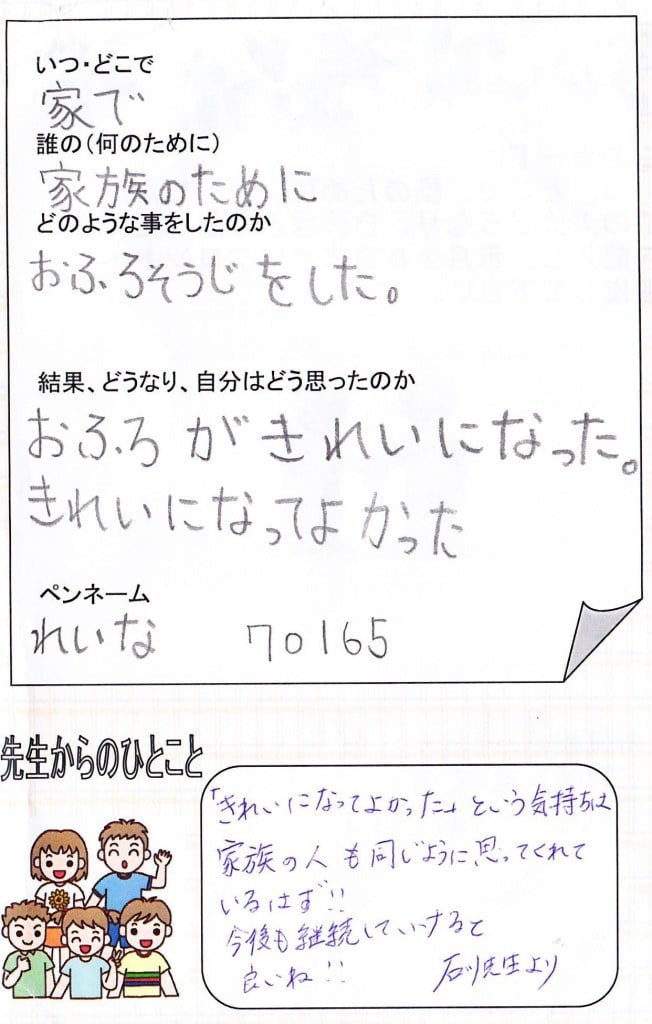 いつ・どこで
家で
誰の(何のために)
家族のために
どのような事をしたのか
おふろそうじをした。
結果、どうなり、自分はどう思ったのか
おふろがきれいになった。
きれいになってよかった
ペンネーム
れいな 70165
先生からのひとこと
「きれいになってよかった」という気持ちは
家族の人も同じように思ってくれて
いるはず!!
今後も継続していけると
良いね!! 石川先生より